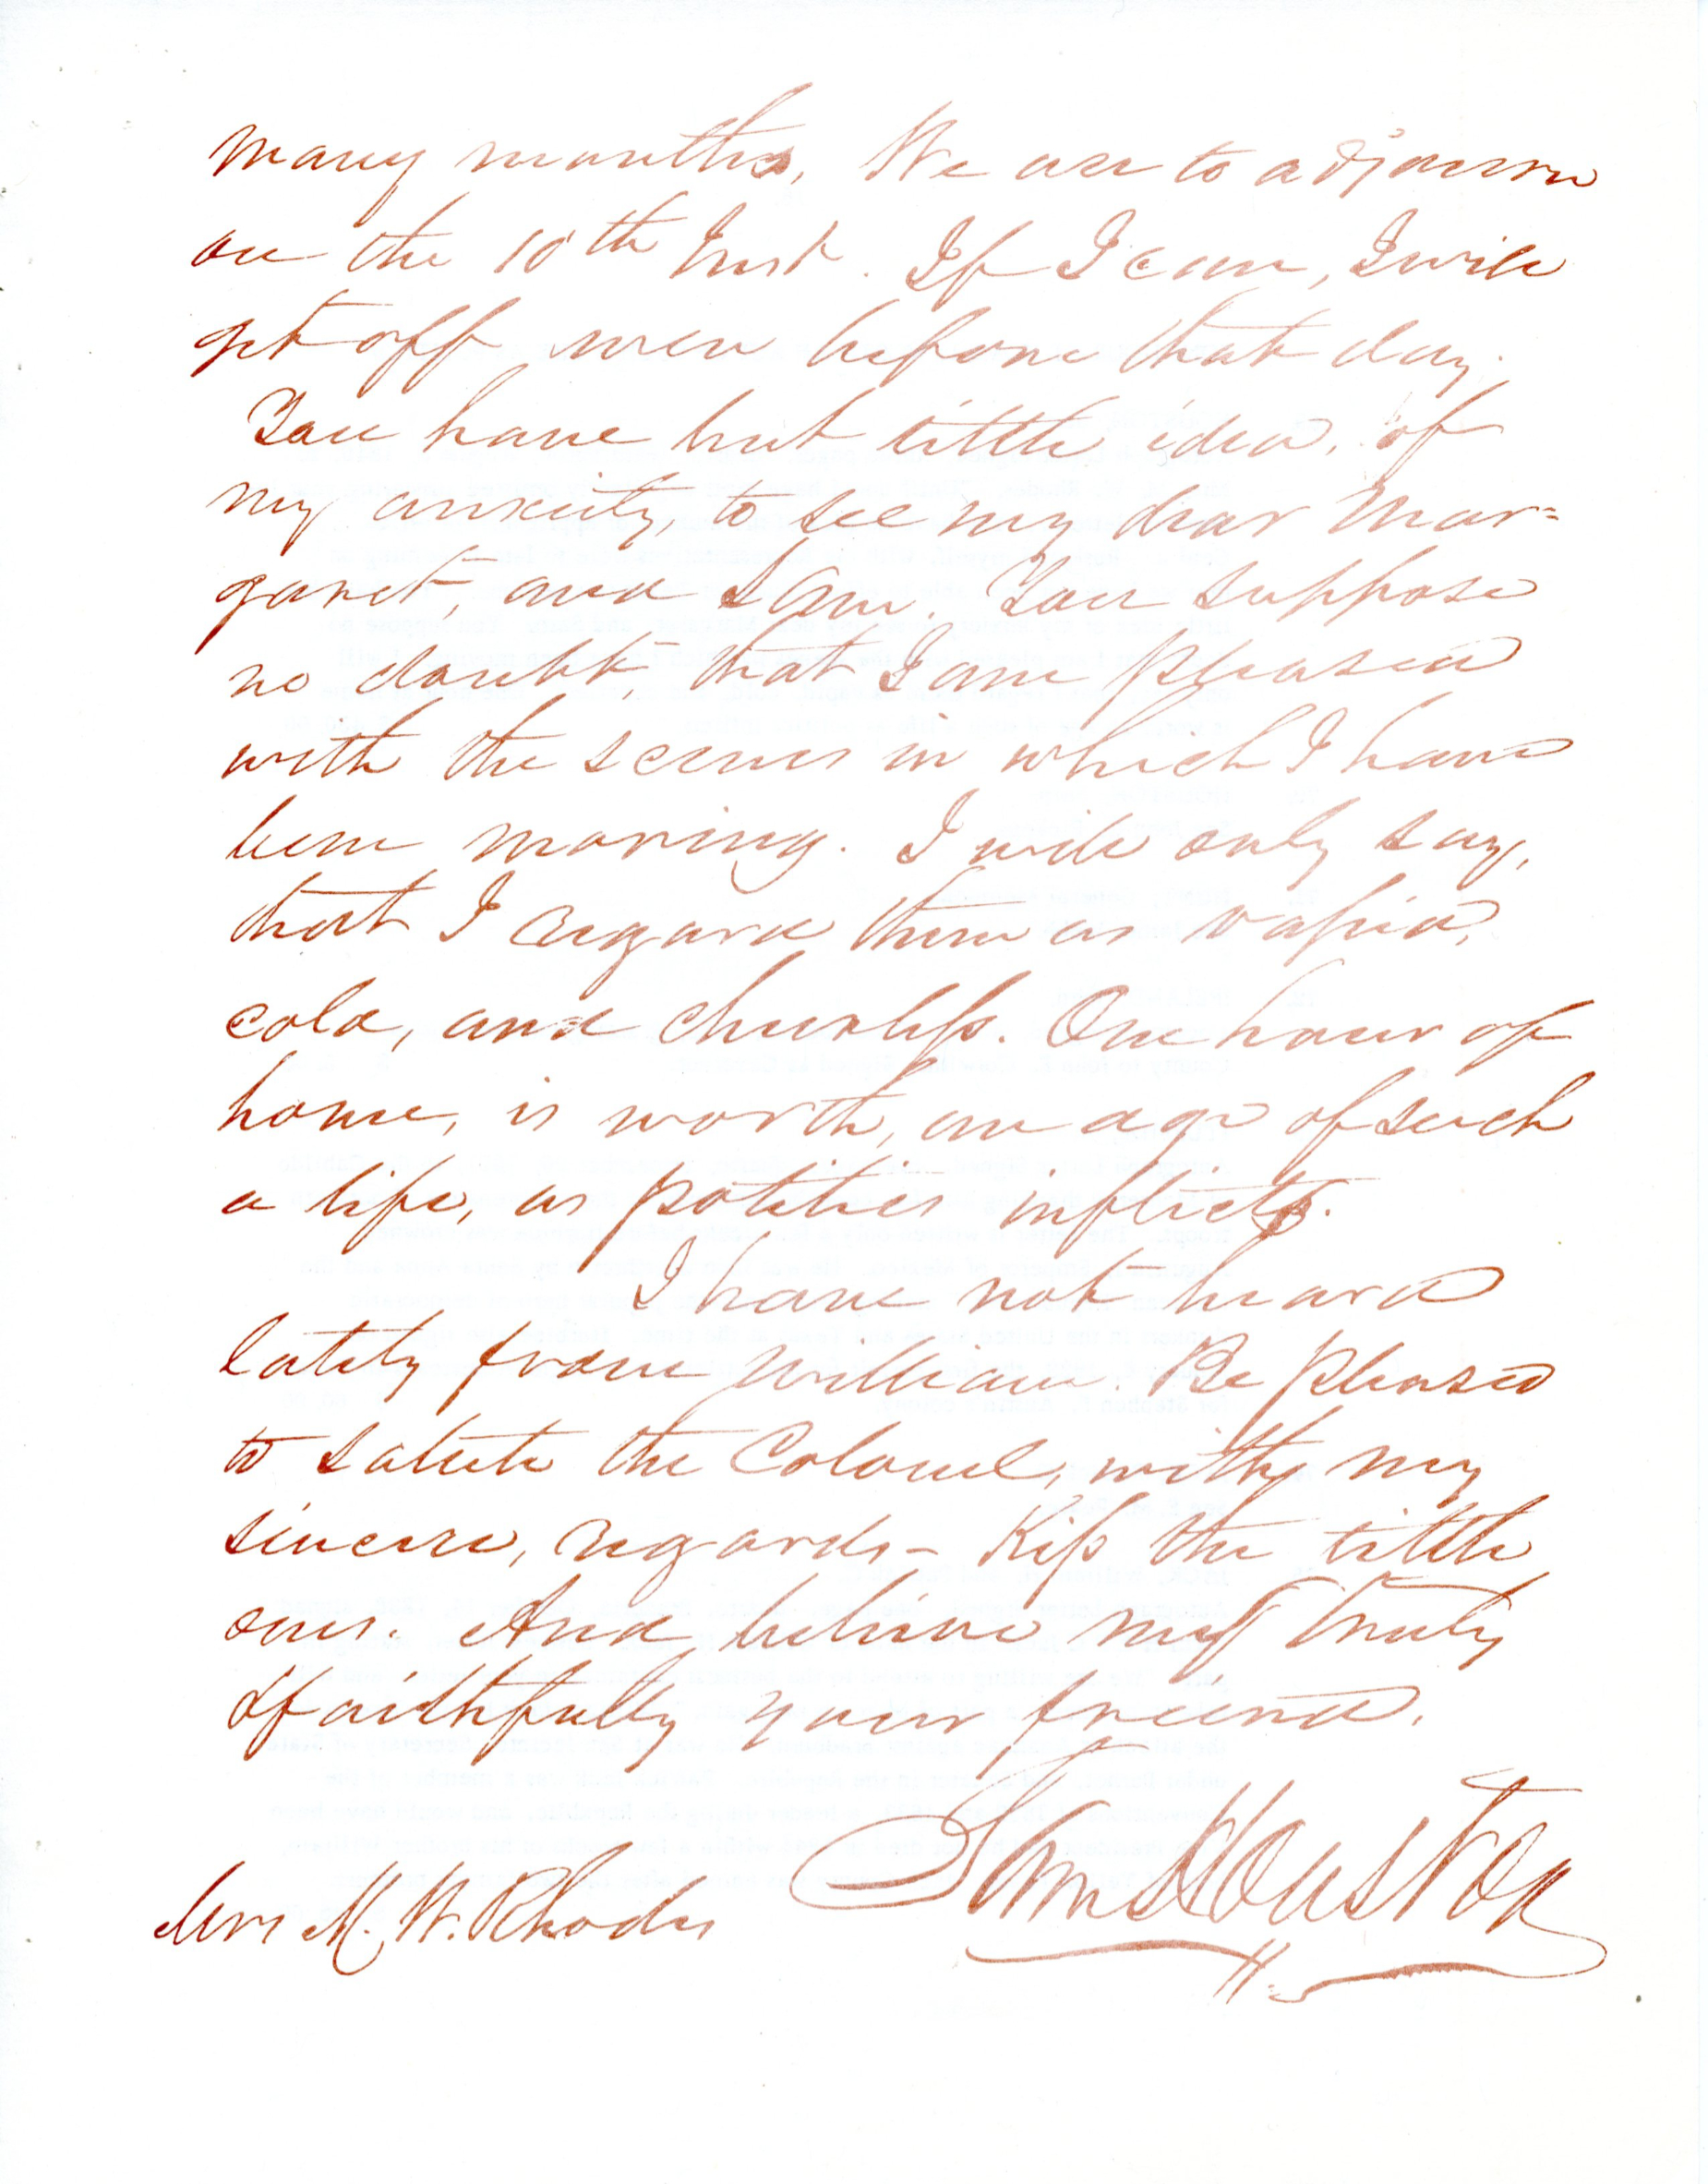 many months, We are to adjourn
on the 10th Inst. If I can, I will
get off even before that day.
You have but little idea, of
my anxiety, to see my dear Mar=
garet, and Sam. You suppose
no doubt, that I am pleased
with the scenes in which I have
been moving. I will only say,
that I regard them as vapid,
cold, and cheerless. One hour of
home, is worth, an age of such
a life, as politics inflicts.
I have not heard
lately from William. Be pleased
to salute the Colonel, with my
sincere, regards— Kiss the little
ones. And believe me truly
& faithfully your friend.
Sam Houston
Mrs M. W. Rhodes